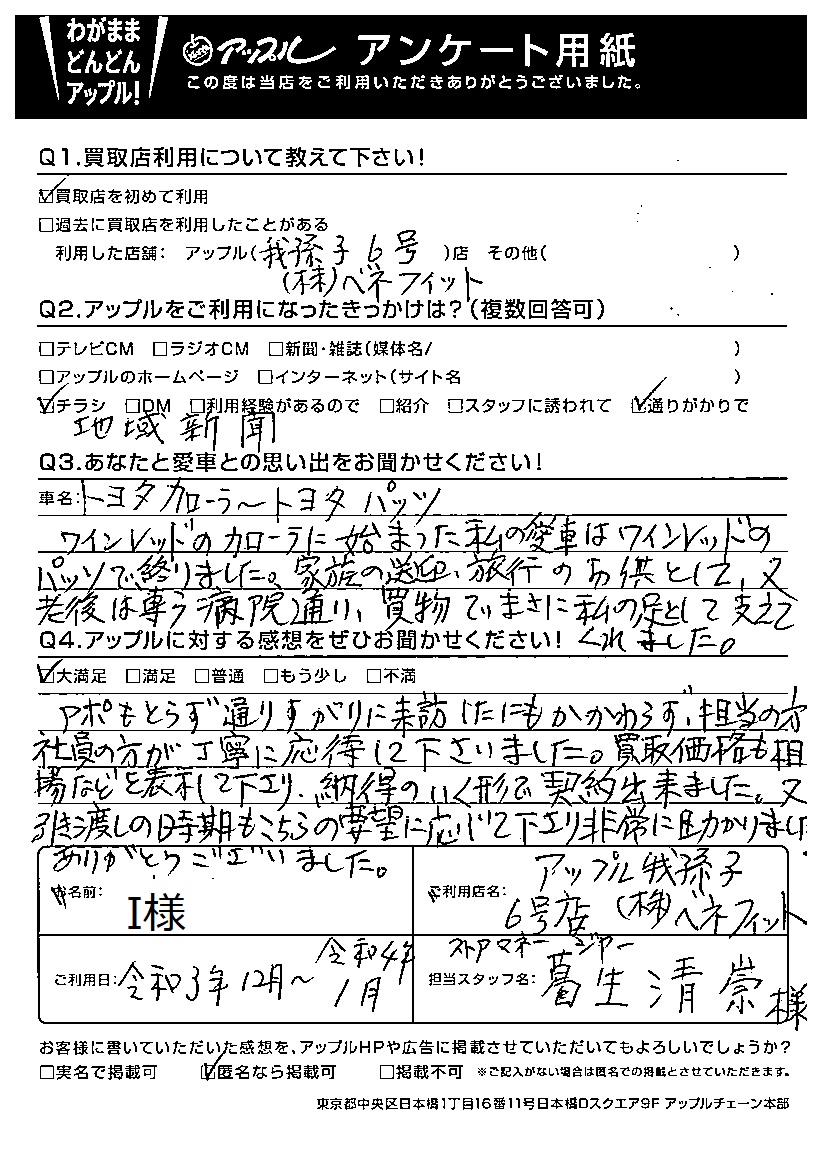 わがまま
どんどん
アップル!
アップル アンケート用紙
この度は当店をご利用いただきありがとうございました。
Q1.買取店利用について教えて下さい!
☑買取店を初めて利用
□過去に買取店を利用したことがある
利用した店舗: アップル(我孫子6号)店 その他( )
(株)ベネフィット
Q2.アップルをご利用になったきっかけは?(複数回答可)
□テレビCM □ラジオCM □新聞・雑誌(媒体名/ )
□アップルのホームページ □インターネット(サイト名 )
☑チラシ □DM □利用経験があるので □紹介 □スタッフに誘われて ☑通りがかりで
地域新聞
Q3.あなたと愛車との思い出をお聞かせください!
車名:トヨタカローラ～トヨタ パッソ
ワインレッドのカローラに始まった私の愛車はワインレッドの
パッソで終りました。家族の送迎、旅行のお供として、又
老後は専う病院通り、買物でまさに私の足として支えて
くれました。
Q4.アップルに対する感想をぜひお聞かせください!
☑大満足 □満足 □普通 □もう少し □不満
アポもとらず通りすがりに来訪したにもかかわらず、担当の方
社員の方が丁寧に応待して下さいました。買取価格も相
場などを表示して下さり、納得のいく形で契約出来ました。又
引き渡しの時期もこちらの要望に応じて下さり非常に助かりまし
ありがとうございました。
お名前: I様
ご利用店名: アップル我孫子
6号店 (株)ベネフィット
ご利用日:令和3年12月～令和4年
1月
ストアマネージャー
担当スタッフ名: 葛生清崇様
お客様に書いていただいた感想を、アップルHPや広告に掲載させていただいてもよろしいでしょうか?
□実名で掲載可 ☑匿名なら掲載可 □掲載不可 ※ご記入がない場合は匿名での掲載とさせていただきます。
東京都中央区日本橋1丁目16番11号日本橋Dスクエア9F アップルチェーン本部